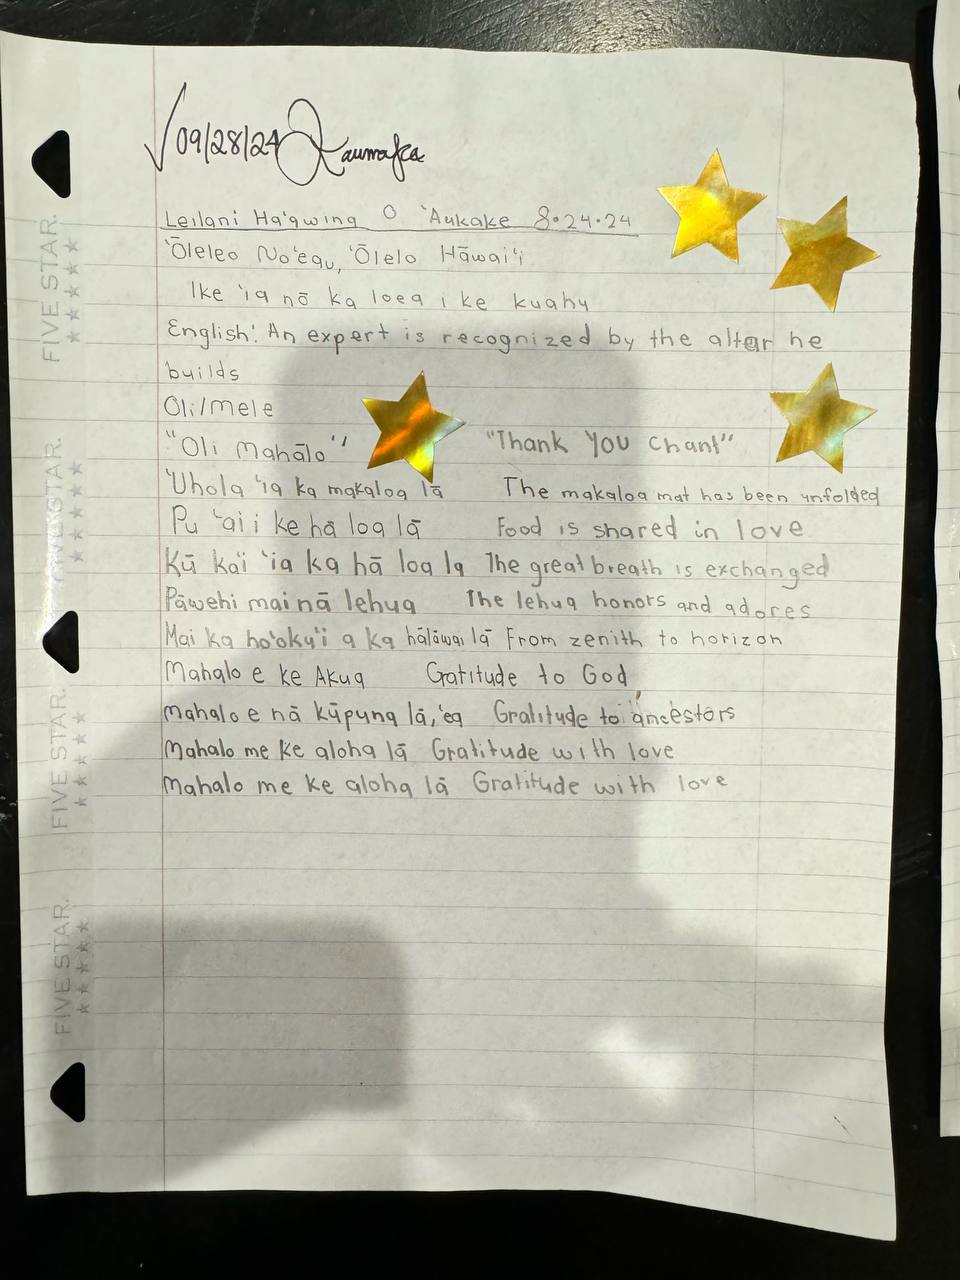 √09/28/24 Kaumaka
Leilani Ha'qwing O 'Aukake 8.24.24
'Ōleleo No'eau, 'Ōlelo Hāwai'i
Ike 'ia nō ka loea i ke kuahu
English: An expert is recognized by the altar he
builds
Oli/Mele
"Oli Mahālo" "Thank You Chant"
'Uhola 'ia ka makaloa lā The makaloa mat has been unfolded
Pu 'ai i ke hā loa lā Food is shared in love
Kū kai 'ia ka hā loa la The great breath is exchanged
Pāwehi mai nā lehua The lehua honors and adores
Mai ka ho'oku'i a ka hālāwai lā From zenith to horizon
Mahalo e ke Akua Gratitude to God
Mahalo e nā kūpuna lā, 'ea Gratitude to ancestors
Mahalo me ke aloha lā Gratitude with love
Mahalo me ke aloha lā Gratitude with love
FIVE STAR.
FIVE STAR.
FIVE STAR.
FIVE STAR.